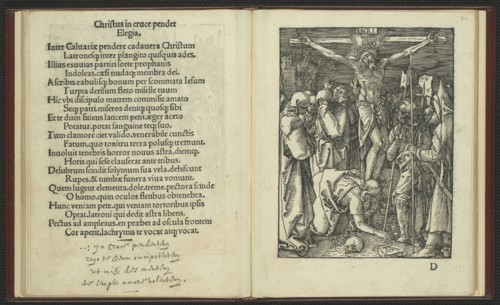 Christus in cruce pendet
Elegia.
Inter Caluariæ pendere cadauera Christum
Latronesq; inter plangito quisquis ades.
Illius exuuias partiri sorte prophanis
Indoleas, cæsi nudaq; membra dei.
Ascribis, rabulisq; bonum per scommata Iesum
Turpia derisum fleto miselle tuum
Hic vbi discipulo matrem commisit amato
Seq; patri, miseros deniq; quosq; sibi
Exte dum sitiens lancem petit, æger aceto
Potatur, potat sanguine teq; suo.
Tum clamore ciet valido, venerabile cunctis
Fatum, quo tonitru terra polusq; tremunt.
Inuoluit tenebris horror nouus astra, diemq;
Horis qui sese clauserat ante tribus.
Delubrum scindit solymum sua vela, dehiscunt
Rupes, & tumbæ funera viua vomunt.
Quem lugent elementa, dole, treme, pectora scinde
O homo, quin oculos flentibus obtenebra.
Hunc veniam pete, qui veniam tortoribus ipsis
Optat, latroni qui dedit astra libens.
Pectus ad amplexus, en præbet ad oscula frontem
Cor aperit, lachrymis te vocat atq; vocat.
in Cruce pendentem
ut mihi des mentem
te semper amare
INRI
D